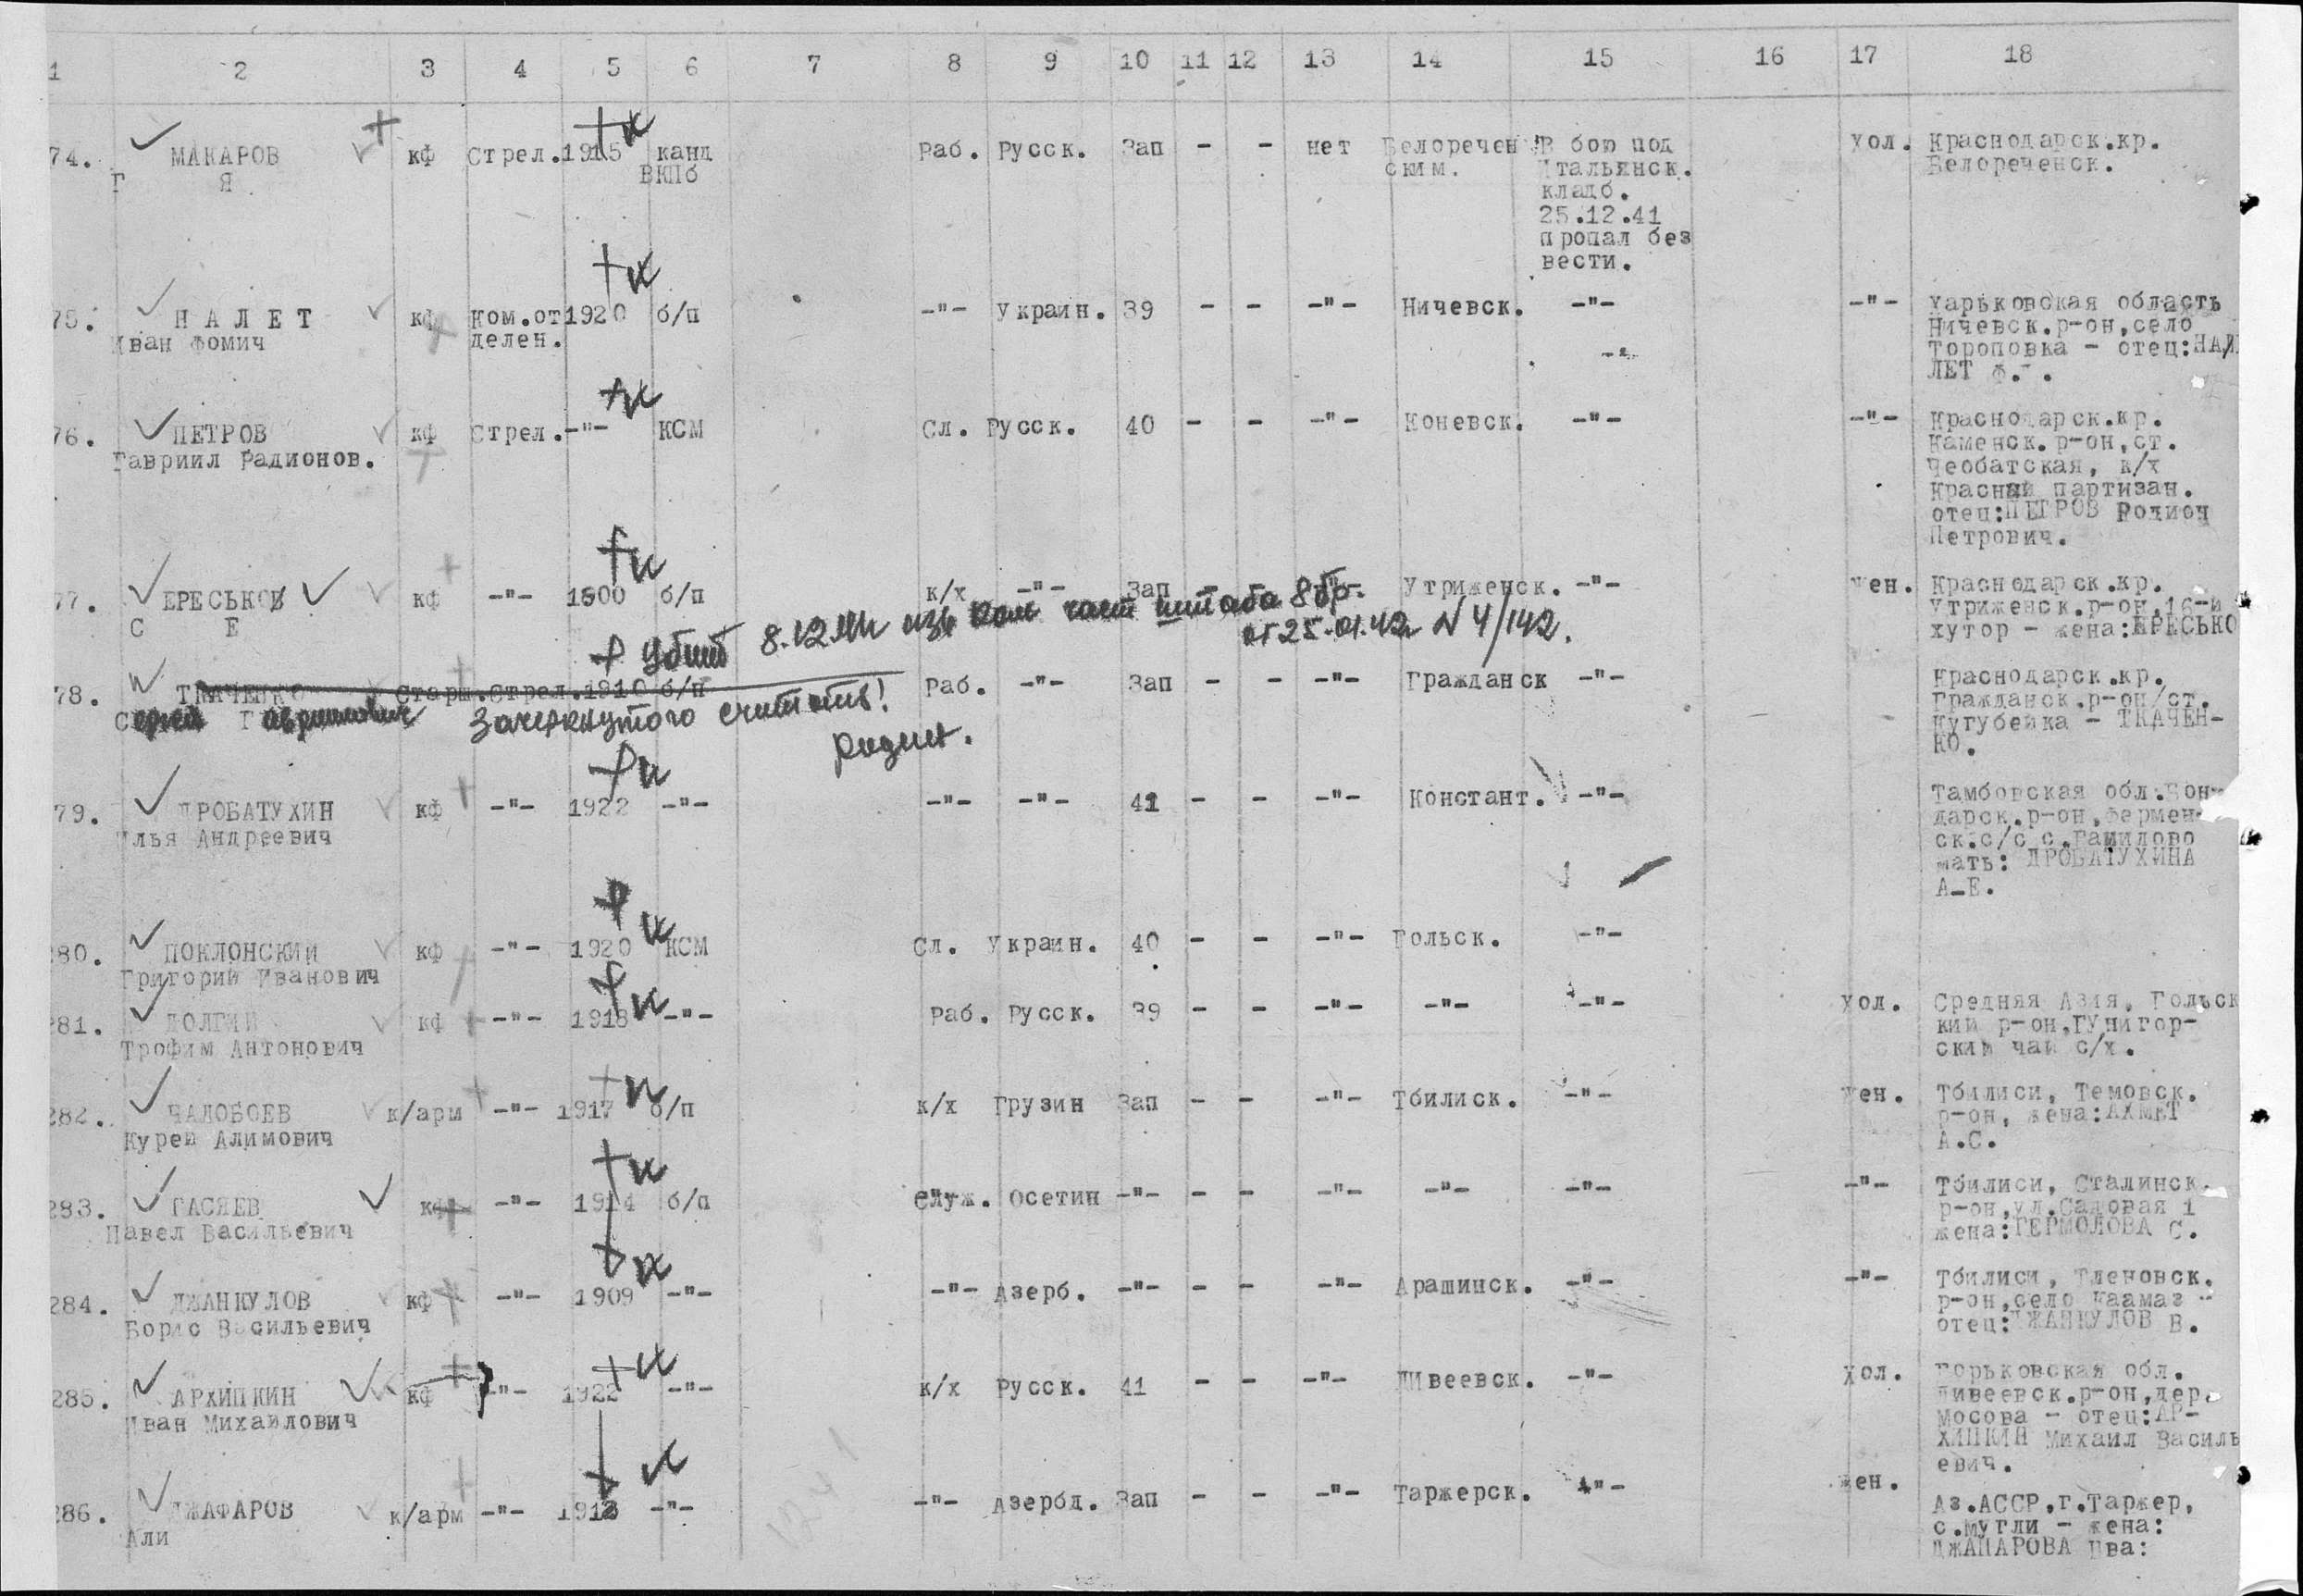 1 2 3 4 5 6 7 8 9 10 11 12 13 14 15 16 17 18
74. МАКАРОВ кф Стрел. 1915 канд Раб. Русск. Зап - - нет Белоречен В бою под хол. Краснодарск.кр.
Г Я ВКПб ским. Итальянск. Белореченск.
кладб.
25.12.41
пропал без
вести.
75. НАЛЕТ кф Ком.от 1920 б/п -"- Украин. 39 - - -"- Ничевск. -"- -"- Харьковская область
Иван Фомич делен. Ничевск.р-он,село
Тороповка - отец:НА
ЛЕТ Ф. .
76. ПЕТРОВ кф Стрел. -"- КСМ Сл. Русск. 40 - - -"- Коневск. -"- -"- Краснодарск.кр.
Гавриил Радионов. Каменск.р-он,ст.
Чеобатская, к/х
Красный партизан.
отец:ПЕТРОВ Родион
Петрович.
77. ЕРЕСЬКОВ кф -"- 1900 б/п к/х -"- Зап Утриженск. -"- жен. Краснодарск.кр.
С Е Утриженск.р-он,16-й
хутор - жена:ЕРЕСЬКО
убит 8.12.41 штаба 8 бр.
от 25.01.42 N 4/142.
78. ТКАЧЕНКО Старш. Стрел. 1910 б/п Раб. -"- Зап - - -"- Гражданск -"- Краснодарск.кр.
Сергей Гаврилович Гражданск.р-он/ст.
Нугубейка - ТКАЧЕН-
КО.
Зачеркнутого считать!
79. ДРОБАТУХИН кф -"- 1922 -"- -"- -"- 41 - - -"- Констант. -"- Тамбовская обл.Бон-
Илья Андреевич дарск.р-он,Фермен-
ск.с/с с.Гамилово
мать: ДРОБАТУХИНА
А-Е.
280. ПОКЛОНСКИЙ кф -"- 1920 КСМ Сл. Украин. 40 - - -"- Гольск. -"-
Григорий Иванович
281. ДОЛГИЙ кф -"- 1918 -"- Раб. Русск. 39 - - -"- -"- -"- хол. Средняя Азия, Гольск
Трофим Антонович кий р-он,Гунигор-
ский чай с/х.
282. ЧАЛОБОЕВ к/арм -"- 1917 б/п к/х Грузин Зап - - -"- Тбилиск. -"- жен. Тбилиси, Темовск.
Курей Алимович р-он, жена:АХМЕТ
А.С.
283. ГАСЯЕВ кф -"- 1914 б/п Служ. Осетин -"- - - -"- -"- -"- -"- Тбилиси, Сталинск.
Павел Васильевич р-он,ул.Садовая 1
жена:ГЕРМОЛОВА С.
284. ДЖАНКУЛОВ кф -"- 1909 -"- -"- Азерб. -"- - - -"- Арашинск. -"- -"- Тбилиси, Тленовск.
Борис Васильевич р-он,село Каамаз -
отец:ДЖАНКУЛОВ В.
285. АРХИПКИН кф -"- 1922 -"- к/х Русск. 41 - - -"- Дивеевск. -"- хол. Горьковская обл.
Иван Михайлович Дивеевск.р-он,дер.
Мосова - отец:АР-
ХИПКИН Михаил Василь
евич.
286. ДЖАФАРОВ к/арм -"- 1913 -"- -"- Азербд. Зап - - -"- Таржерск. -"- жен. Аз.АССР,г.Таржер,
Али с.Мугли - жена:
ДЖАПАРОВА Ева: